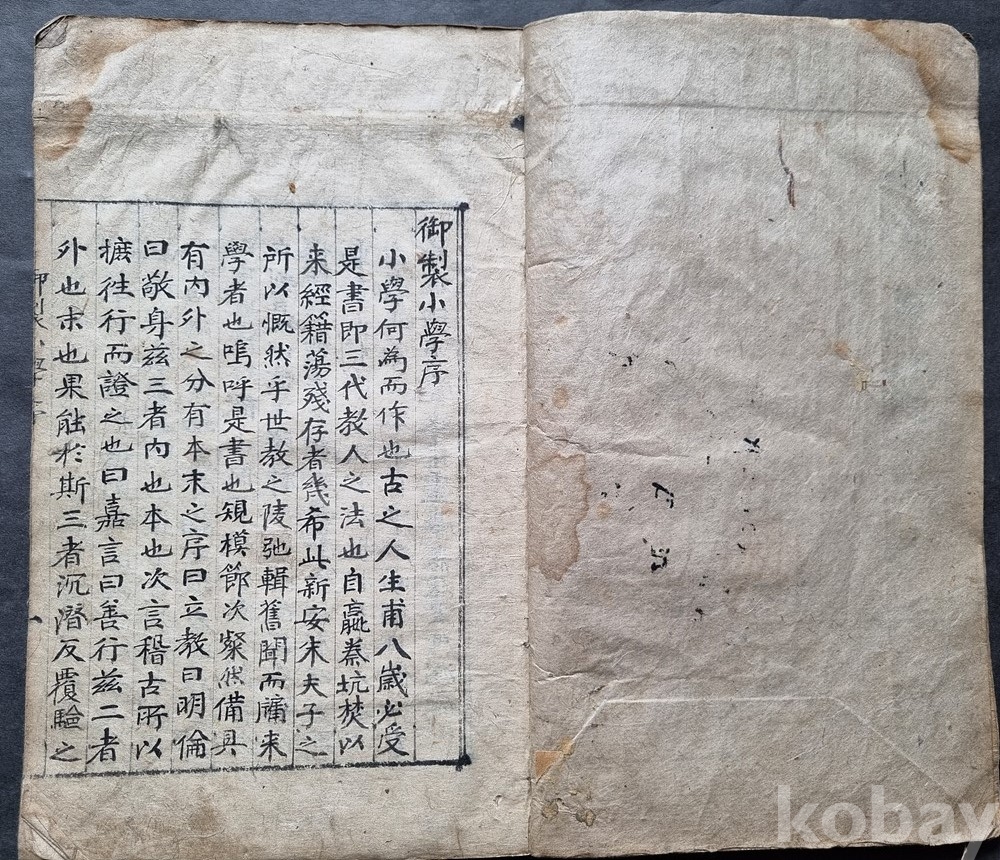 御製小學序
小學何為而作也古之人生甫八歲必受
是書即三代教人之法也自嬴秦坑焚以
来經籍蕩殘存者幾希此新安朱夫子之
所以慨然乎世教之陵弛輯舊聞而牖来
學者也嗚呼是書也規模節次粲然備具
有內外之分有本末之序曰立教曰明倫
曰敬身茲三者內也本也次言稽古所以
摭往行而證之也曰嘉言曰善行茲二者
外也末也果能於斯三者沉潛反覆驗之
kobay